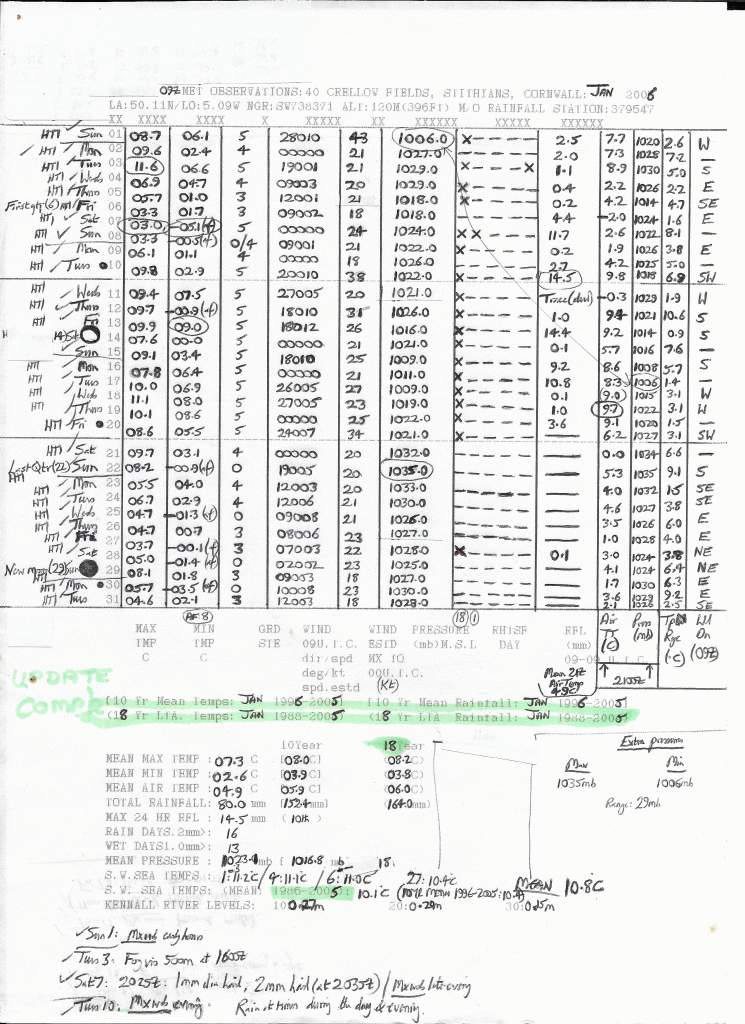 09Z MET OBSERVATIONS:40 CRELLOW FIELDS, STITHIANS, CORNWALL: JAN 2006
LA:50.11N/LO:5.09W NGR:SW738371 ALT:120M(396FT) M/O RAINFALL STATION:379547
XX XXXX XXXX X XXXXX XX XXXXXX XXXXX XXXXXX
HTI ✓ Sun 01 08.7 06.1 5 28010 43 1006.0 X---- 2.5 7.7 1020 2.6 W
HTI Mon 02 09.6 02.4 4 00000 21 1027.0 ----- 2.0 7.3 1028 7.2 —
HTI Tues 03 11.6 06.6 5 19001 21 1029.0 X----X 1.1 8.9 1030 5.0 S
HTI Weds 04 06.9 04.7 4 09003 20 1029.0 ----- 2.2 1026 2.2 E
HTI Thurs 05 05.7 01.0 3 12001 21 1018.0 X---- 0.4 4.2 1014 4.7 SE
First qtr (6) HTI Fri 06 03.3 01.7 3 09002 18 1018.0 X---- 0.2 -2.0 1024 1.6 E
HTI Sat 07 03.0 -05.1(f) 5 00000 24 1024.0 ----- 4.4 2.6 1022 8.1 —
✓ Sun 08 03.3 00.5(f) 0/4 09001 21 1022.0 X X---- 11.7 1.9 1026 3.8 E
HTI Mon 09 06.1 01.1 4 00000 18 1026.0 ----- 0.2 4.2 1025 5.0 —
HTI / Tues 10 09.8 02.9 5 20010 38 1022.0 X---- 2.7 14.5 9.8 1018 6.9 SW
HTI Weds 11 09.4 07.5 5 27005 20 1021.0 ----- Trace(dew) -0.3 1029 1.9 W
HTI Thurs 12 09.7 -00.9(f) 5 18010 31 1026.0 X---- 1.0 9.4 1021 10.6 S
HTI Fri 13 09.9 09.0 5 18012 26 1016.0 X---- 14.4 9.2 1014 0.9 S
14 07.6 00.0 5 00000 21 1021.0 X---- 0.1 5.7 1016 7.6 —
Sun 15 09.1 03.4 5 18010 25 1009.0 X---- 9.2 8.6 1008 5.7 S
HTI Mon 16 07.8 06.4 5 00000 21 1011.0 X---- 10.8 8.3 1006 1.4 —
HTI Tues 17 10.0 06.9 5 26005 27 1009.0 X---- 0.1 9.0 1015 3.1 W
HTI Weds 18 11.1 08.0 5 27005 23 1019.0 X---- 1.0 9.7 1022 3.1 W
HTI Thurs 19 10.1 08.6 5 00000 25 1022.0 X---- 3.6 9.1 1020 1.5 —
HTI Fri 20 08.6 05.5 5 24007 34 1021.0 X---- — 6.2 1027 3.1 SW
HTI Sat 21 09.7 03.1 4 00000 20 1032.0 ----- — 0.0 1034 6.6 —
Last Qtr (22) Sun 22 08.2 -00.9(f) 0 19005 20 1035.0 ----- — 5.3 1035 9.1 S
HTI Mon 23 05.5 04.0 4 12003 20 1033.0 ----- — 4.0 1032 1.5 SE
HTI Tues 24 06.7 02.9 4 12006 21 1030.0 ----- — 4.6 1027 3.8 SE
HTI Weds 25 04.7 -01.3(f) 0 09008 21 1026.0 ----- — 3.5 1026 6.0 E
HTI Thurs 26 04.7 00.7 3 08006 23 1027.0 ----- — 1.0 1028 4.0 E
HTI Fri 27 03.7 -00.1(f) 3 07003 22 1028.0 X---- 0.1 3.0 1024 3.8 NE
HTI Sat 28 05.0 -01.4(f) 0 02002 23 1025.0 ----- — 4.1 1024 6.4 NE
New moon (29) Sun 29 08.1 01.8 3 09003 18 1027.0 ----- — 1.7 1030 6.3 E
HTI Mon 30 05.7 -03.5(f) 0 10008 21 1030.0 ----- — 3.6 1029 9.2 E
HTI Tues 31 04.6 02.1 3 12003 18 1028.0 ----- — 2.1 1026 2.5 SE
AF.8 18 1
MAX MIN GRD WIND WIND PRESSURE RHTSF RFL Air Press Temp Wd
TMP TMP STE 09U.T.C. ESTD (mb)M.S.L DAY. (mm) TT (mb) Rge On
C C dir.spd MX TO 09-09 U.T.C (°C) (°C) (09Z)
deg/kt 00U.T.C. Mean 21Z
spd.estd (Kt) Air Temp 4.9°C 2100Z
UPDATE
COMP
[10 Yr Mean Temps: JAN 1996-2005] [10 Yr Mean Rainfall: JAN 1996-2005]
(18 Yr LTA. Temps: JAN 1988-2005) (18 Yr LTA Rainfall: JAN 1988-2005)
10Year 18Year Extra pressures
MEAN MAX TEMP :07.3 C [08.0 C] (08.2 C) Max Min
MEAN MIN TEMP :02.6 C [03.9 C] (03.8 C) 1035mb 1006mb
MEAN AIR TEMP :04.9 C [05.9 C] (06.0 C) Range: 29mb
TOTAL RAINFALL: 80.0 mm [152.4 mm] (164.0 mm)
MAX 24 HR RFL : 14.5 mm (10th)
RAIN DAYS.2mm>: 16
WET DAYS1.0mm>: 13
MEAN PRESSURE : 1023.0 mb [ 1016.8 mb 18
S.W.SEA TEMPS : 1:11.2°C / 4:11.1°C / 6:11.0°C 27:10.4°C MEAN 10.8°C
S.W. SEA TEMPS: (MEAN: 1986-2005): 10.1°C
KENNALL RIVER LEVELS: 10:0.27m 20:0.29m 30:0.25m
✓ Sun 1: Mx wd early hours
✓ Tues 3: Fog vis 500m at 1600Z
✓ Sat 7: 2025Z: 1mm dia hail, 2mm hail (at 2035Z) / Mx wd late evening
✓ Tues 10: Mx wd evening. Rain at times during the day & evening.